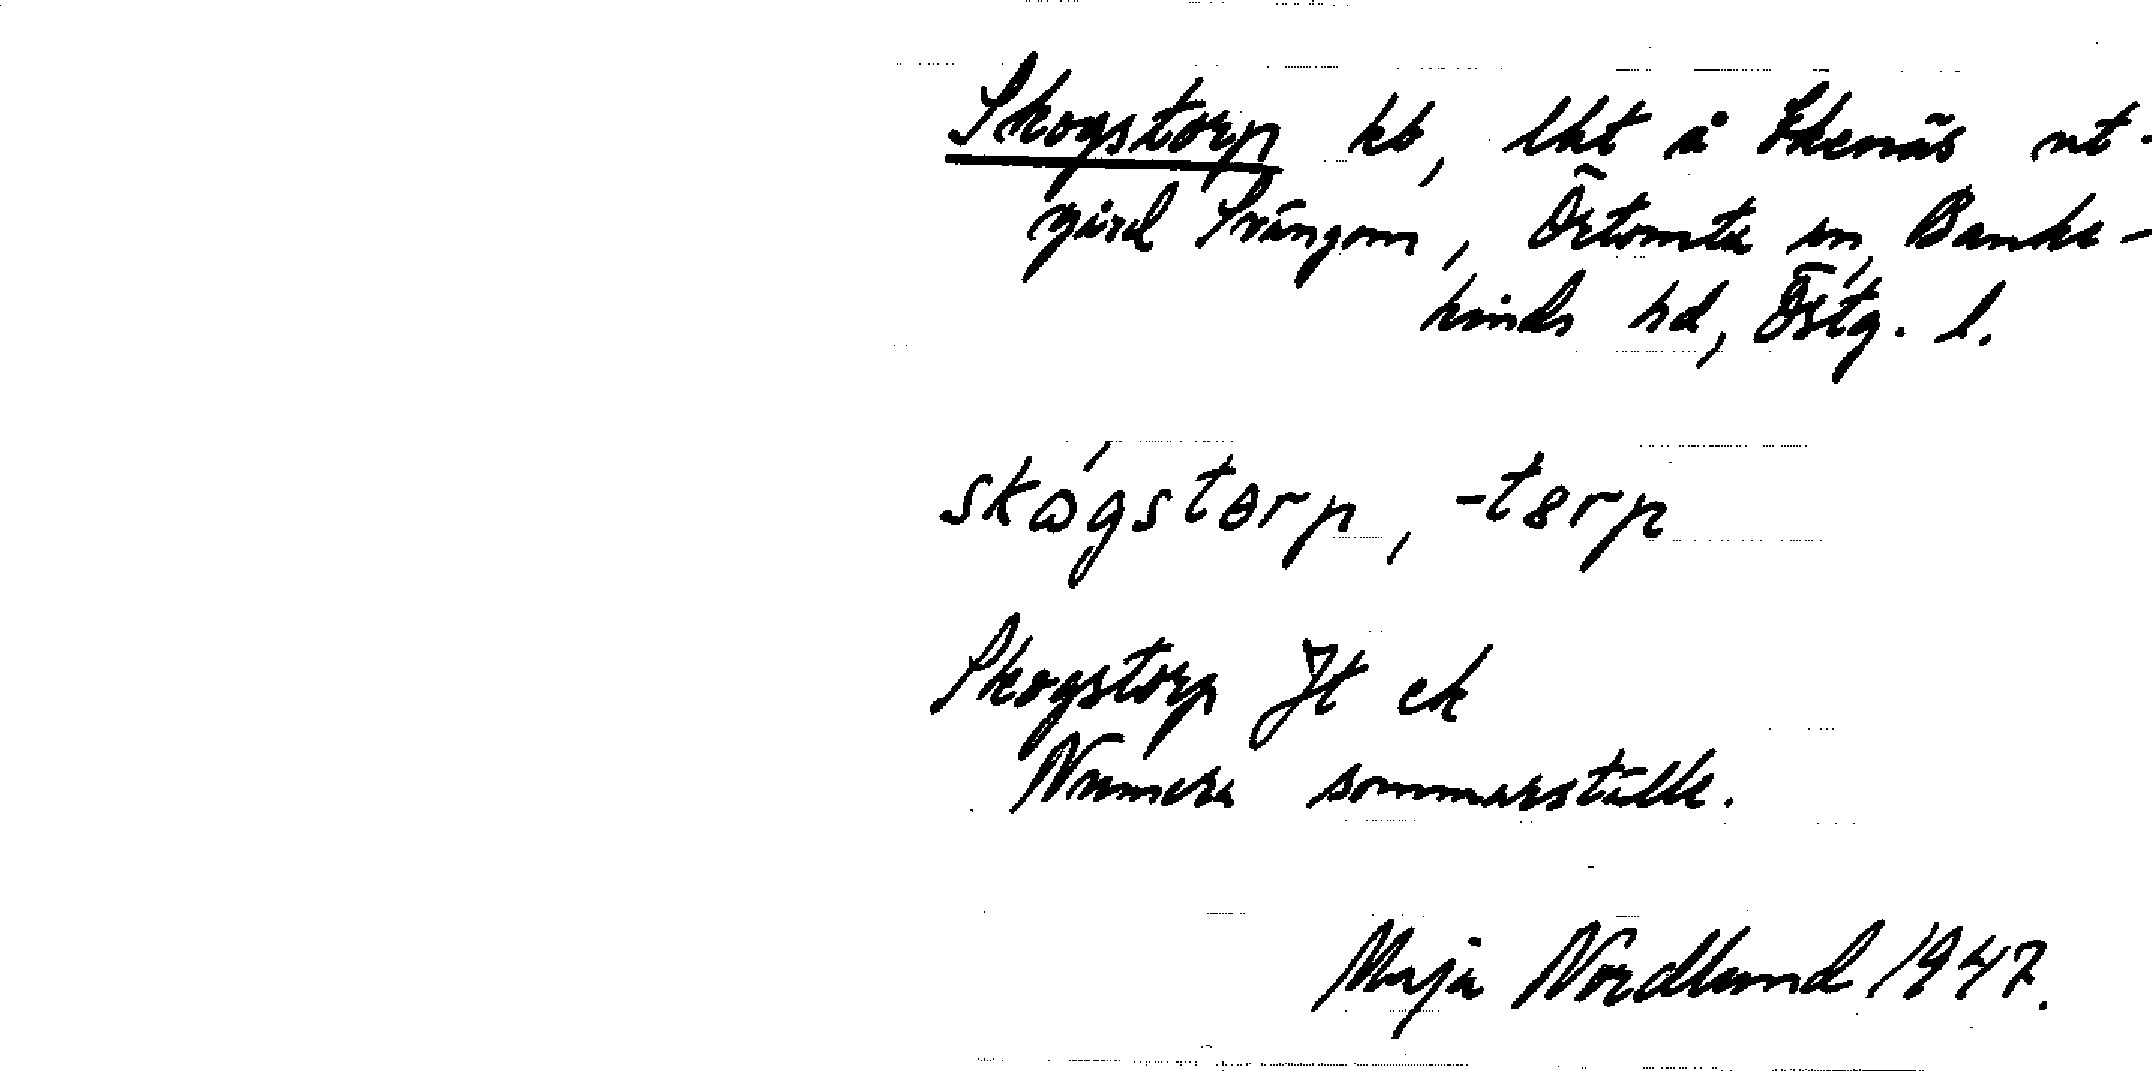 Skogstorp hb, lht å Ekenäs ut-
gård Svängom, Örtomta sn, Banke-
kinds hd, Östg. l.
skógstorp, -tɵrp
Skogstorp Jt ek
Numera sommarställe.
Maja Nordlund 1947.